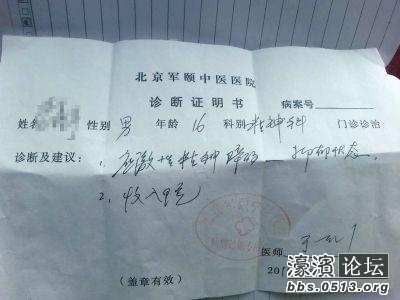 北京军颐中医医院
诊断证明书 病案号
姓名 性别 男 年龄 16 科别 精神科 门诊诊治
诊断及建议: 1. 应激性精神障碍 — 抑郁状态.
2. 收入
医师
201
(盖章有效)
濠滨论坛
bbs.0513.org